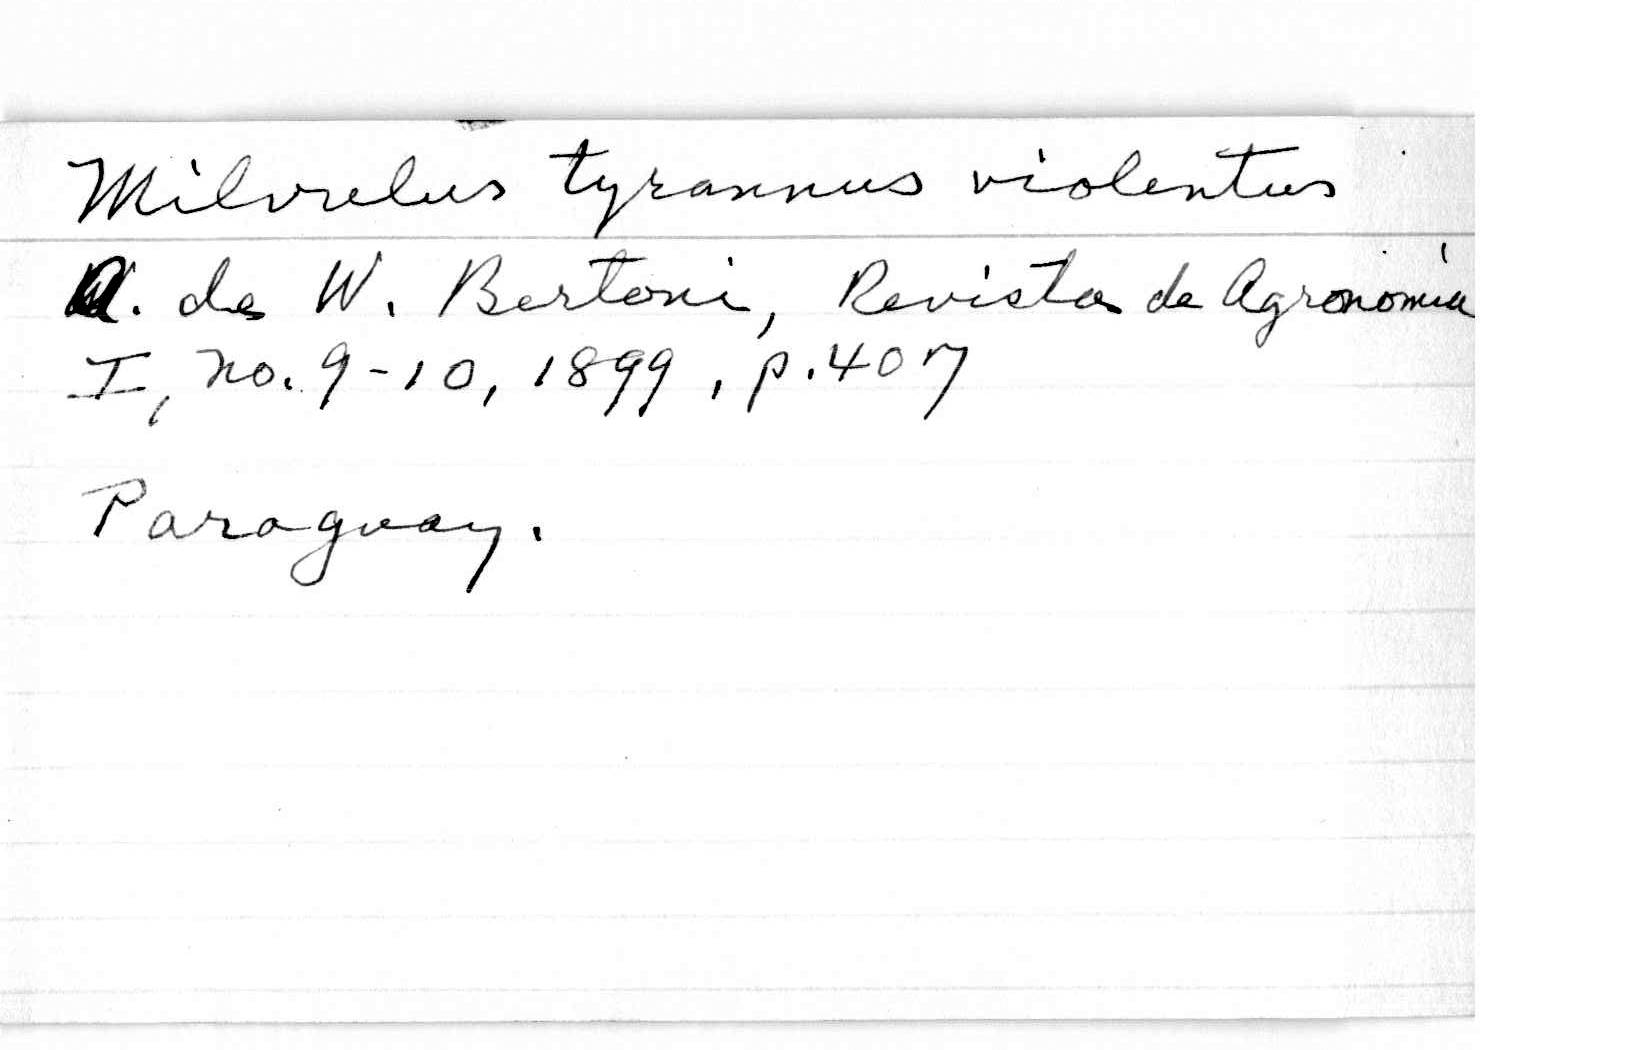 Milvulus tyrannus violentus
A. de W. Bertoni, Revista de Agronomía
I, no. 9-10, 1899, p. 407
Paraguay.